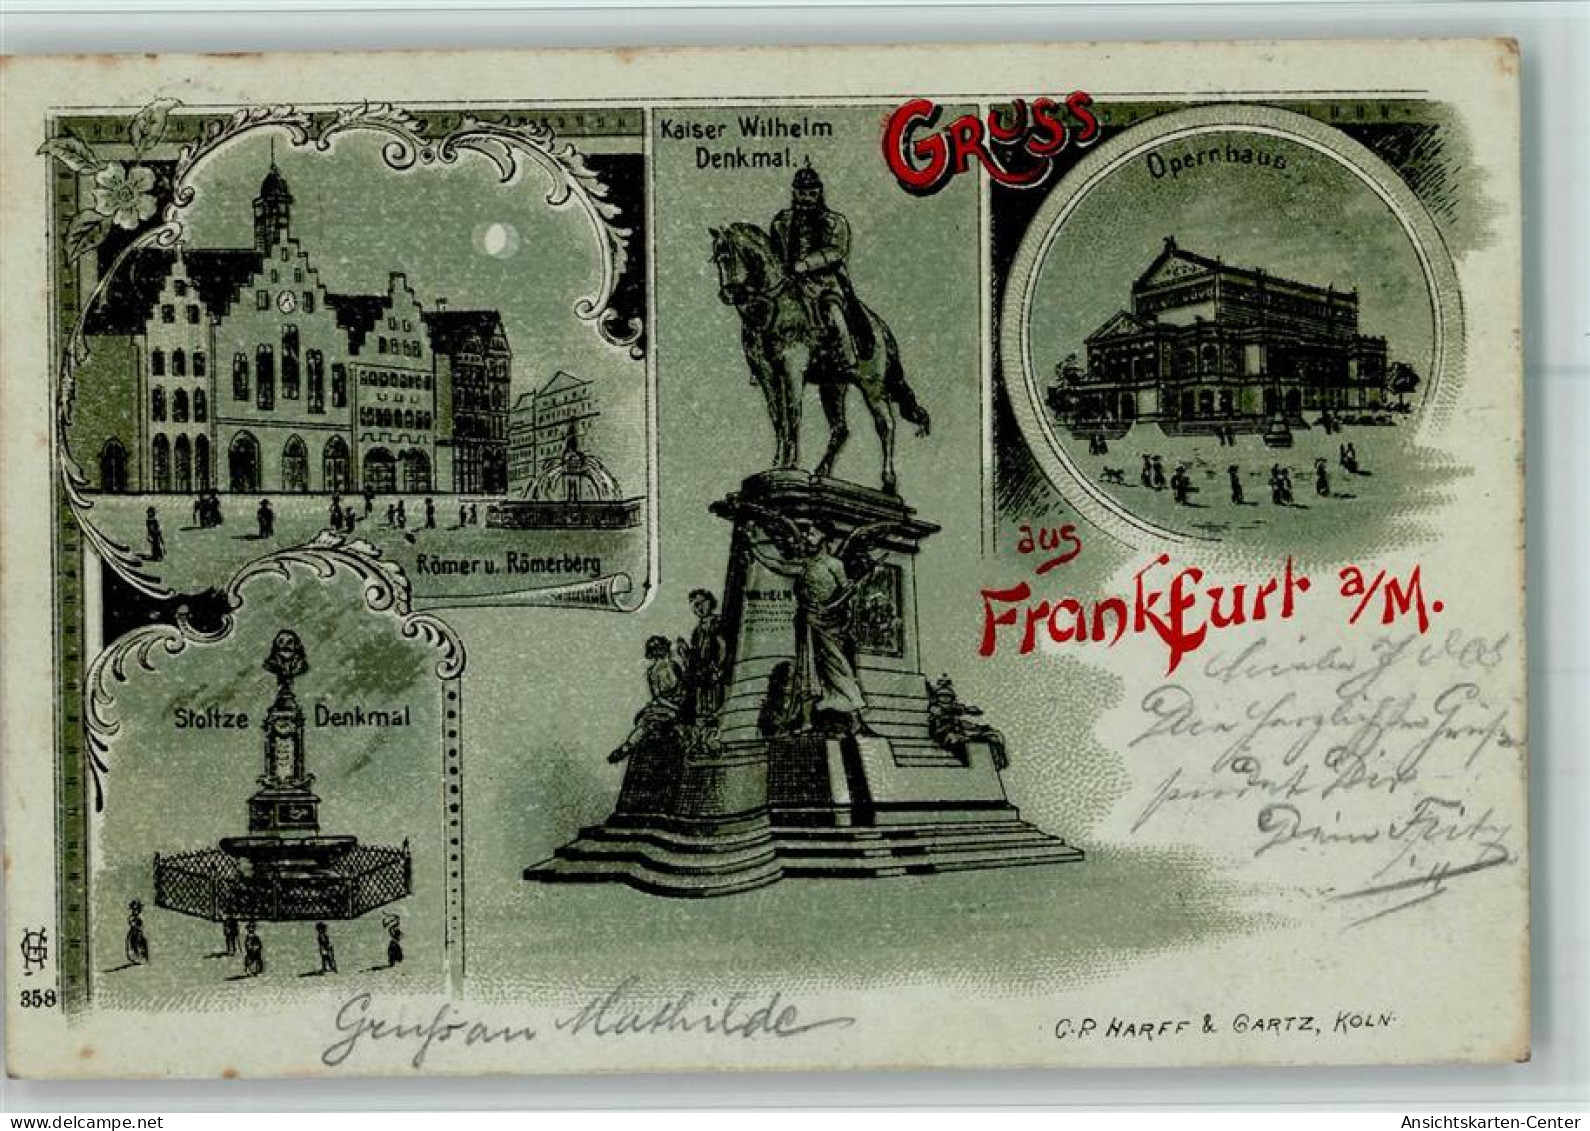 Kaiser Wilhelm
Denkmal.
GRUSS
Opernhaus
Römer u. Römerberg
aus
Frankfurt a/M.
WILHELM
Stoltze Denkmal
Die herzlichsten Grüße
sendet Dir
Dein Fritz
358
Gruß an Mathilde
C.P. HARFF & GARTZ, KOLN.
www.delcampe.net
Ansichtskarten-Center